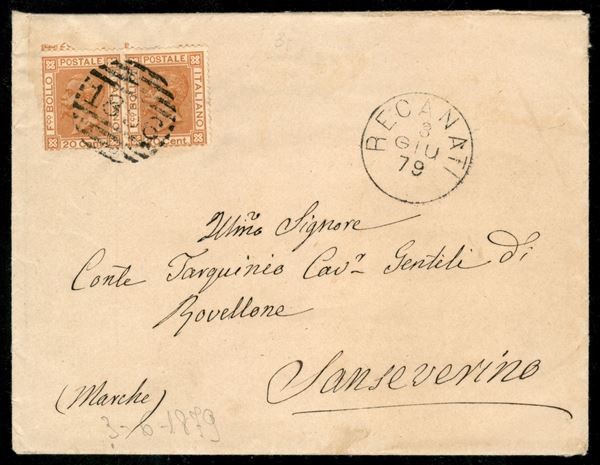 POSTALE POSTALE
F.CO BOLLO ITALIANO
20 Cent. 20 Cent.
RECANATI
3
GIU
79
Illmo Signore
Conte Tarquinio Cavr Gentili di
Rovellone
Sanseverino
(Marche)
3-6-1879